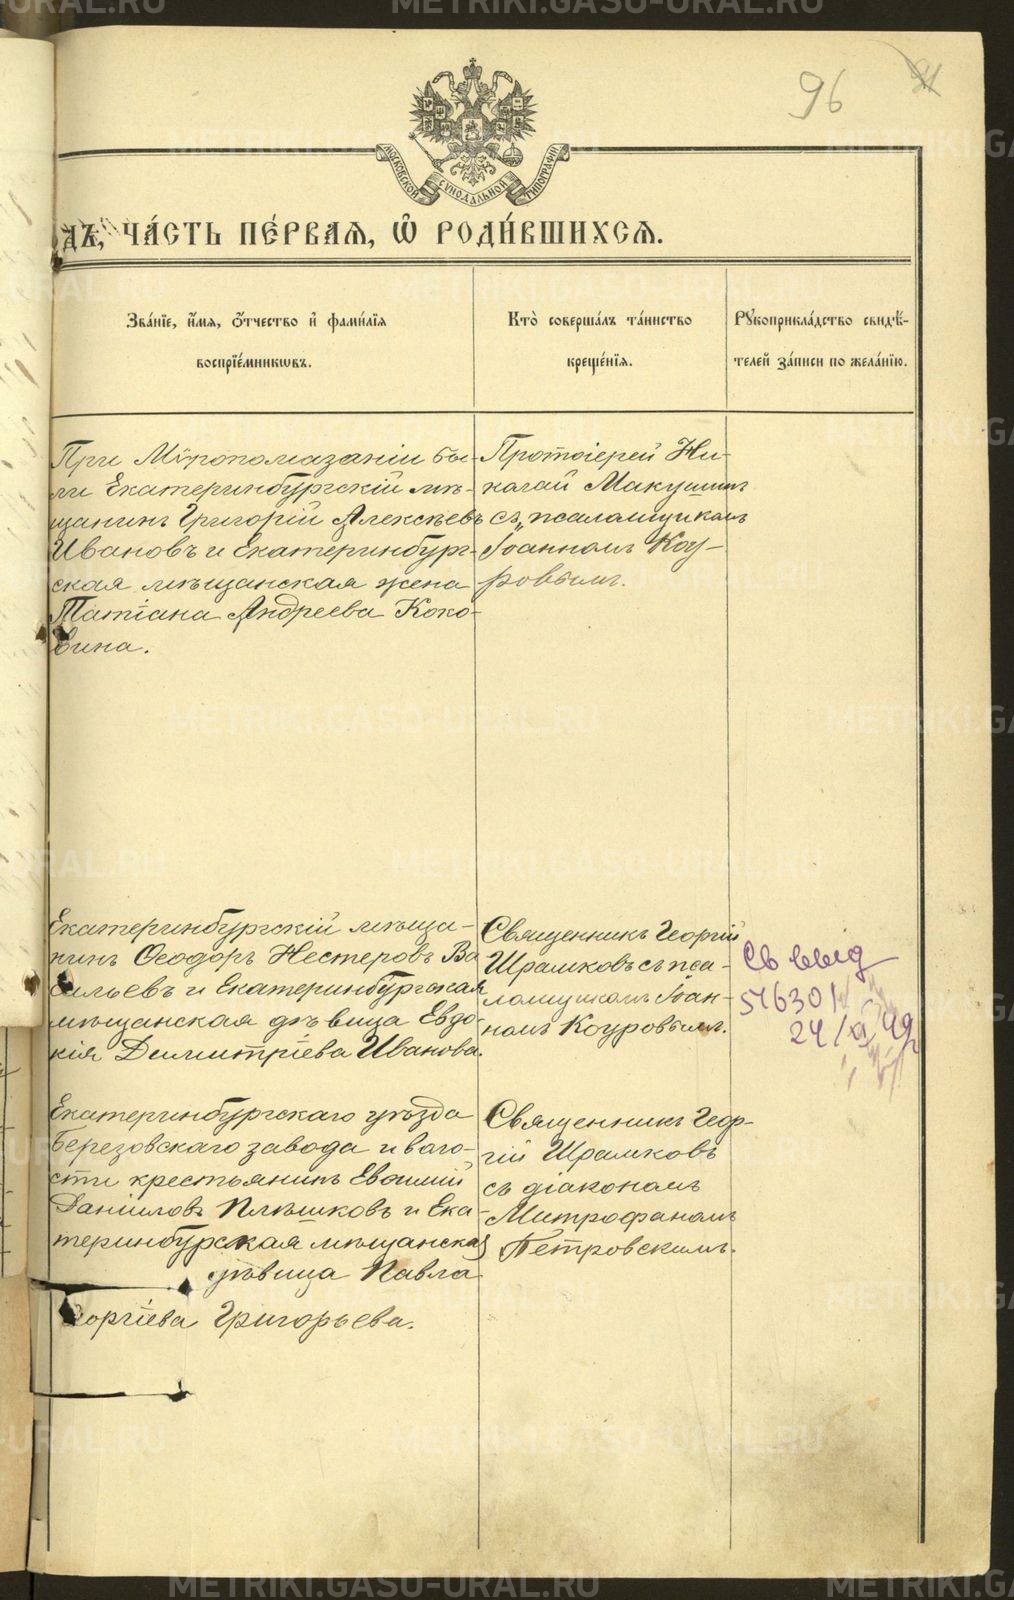 96
91
МОСКОВСКОЙ СѴНОДАЛЬНОЙ ТИПОГРАФИИ
дъ, ча́сть пе́рваѧ, ѡ҆ роди́вшихсѧ.
Зва́нїе, и҆́мѧ, ѻ҆́тчество и҆ фами́лїѧ
воспрїе́мникѡвъ.
Кто̀ соверша́лъ та́инство
креще́нїѧ.
Рꙋкоприкла́дство свидѣ́-
телей за́писи по жела́нїю.
При Мѵропомазаніи бы-
ли Екатеринбургскій мѣ-
щанинъ Григорій Алексѣевъ
Ивановъ и Екатеринбург-
ская мѣщанская жена
Татіана Андреева Коко-
вина.
Протоіерей Ни-
колай Макушинъ
съ псаломщикомъ
Іоанномъ Коу-
ровымъ.
Екатеринбургскій мѣща-
нинъ Ѳеодоръ Нестеровъ Ва
сильевъ и Екатеринбургская
мѣщанская дѣвица Евдо-
кія Димитріева Иванова.
Священникъ Георгій
Шрамковъ съ пса-
ломщикомъ Іоан-
номъ Коуровымъ.
Св выд
516301
24/
Екатеринбургскаго уѣзда
Березовскаго завода и воло-
сти крестьянинъ Евѳимій
Даніиловъ Плѣшковъ и Ека-
теринбургская мѣщанская
дѣвица Павла
Георгіева Григорьева.
Священникъ Геор-
гій Шрамковъ
съ діакономъ
Митрофаномъ
Петровскимъ.
METRIKI.GASO-URAL.RU